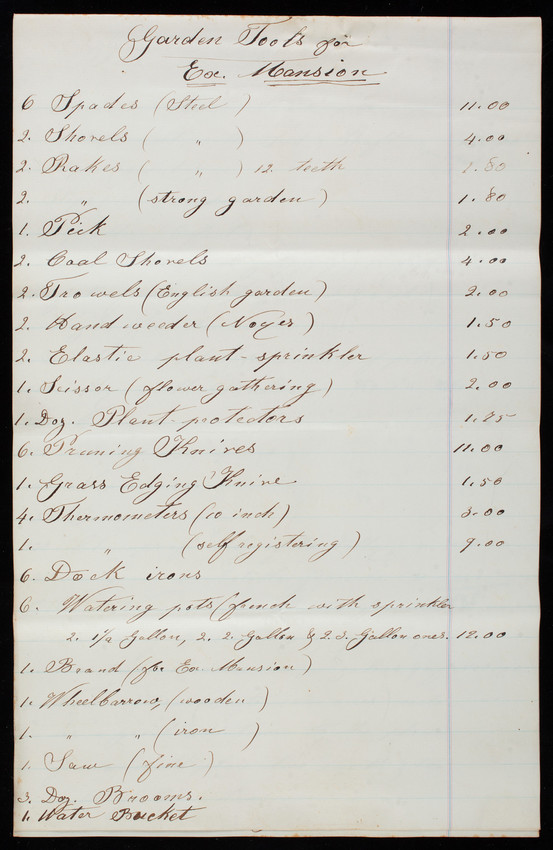 Garden Tools for
Ex. Mansion
6 Spades (Steel) 11.00
2. Shovels ( " ) 4.00
2. Rakes ( " ) 12 teeth 1.80
2. " (strong garden) 1.80
1. Pick 2.00
2. Coal Shovels 4.00
2. Trowels (English garden) 2.00
2. Hand weeder (Noyes) 1.50
2. Elastic plant-sprinkler 1.50
1. Scissor (flower gathering) 2.00
1. Doz. Plant-protectors 1.75
6. Pruning Knives 11.00
1. Grass Edging Knive 1.50
4. Thermometers (10 inch) 3.00
1. " (self registering) 9.00
6. Dock irons
6. Watering pots (french with sprinkler
2. 1½ Gallon, 2. 2. Gallon & 2.3. Gallon ones. 12.00
1. Brand (for Ex. Mansion)
1. Wheelbarrow, (wooden)
1. " " (iron)
1. Saw (fine)
3. Doz. Brooms.
1. Water Bucket